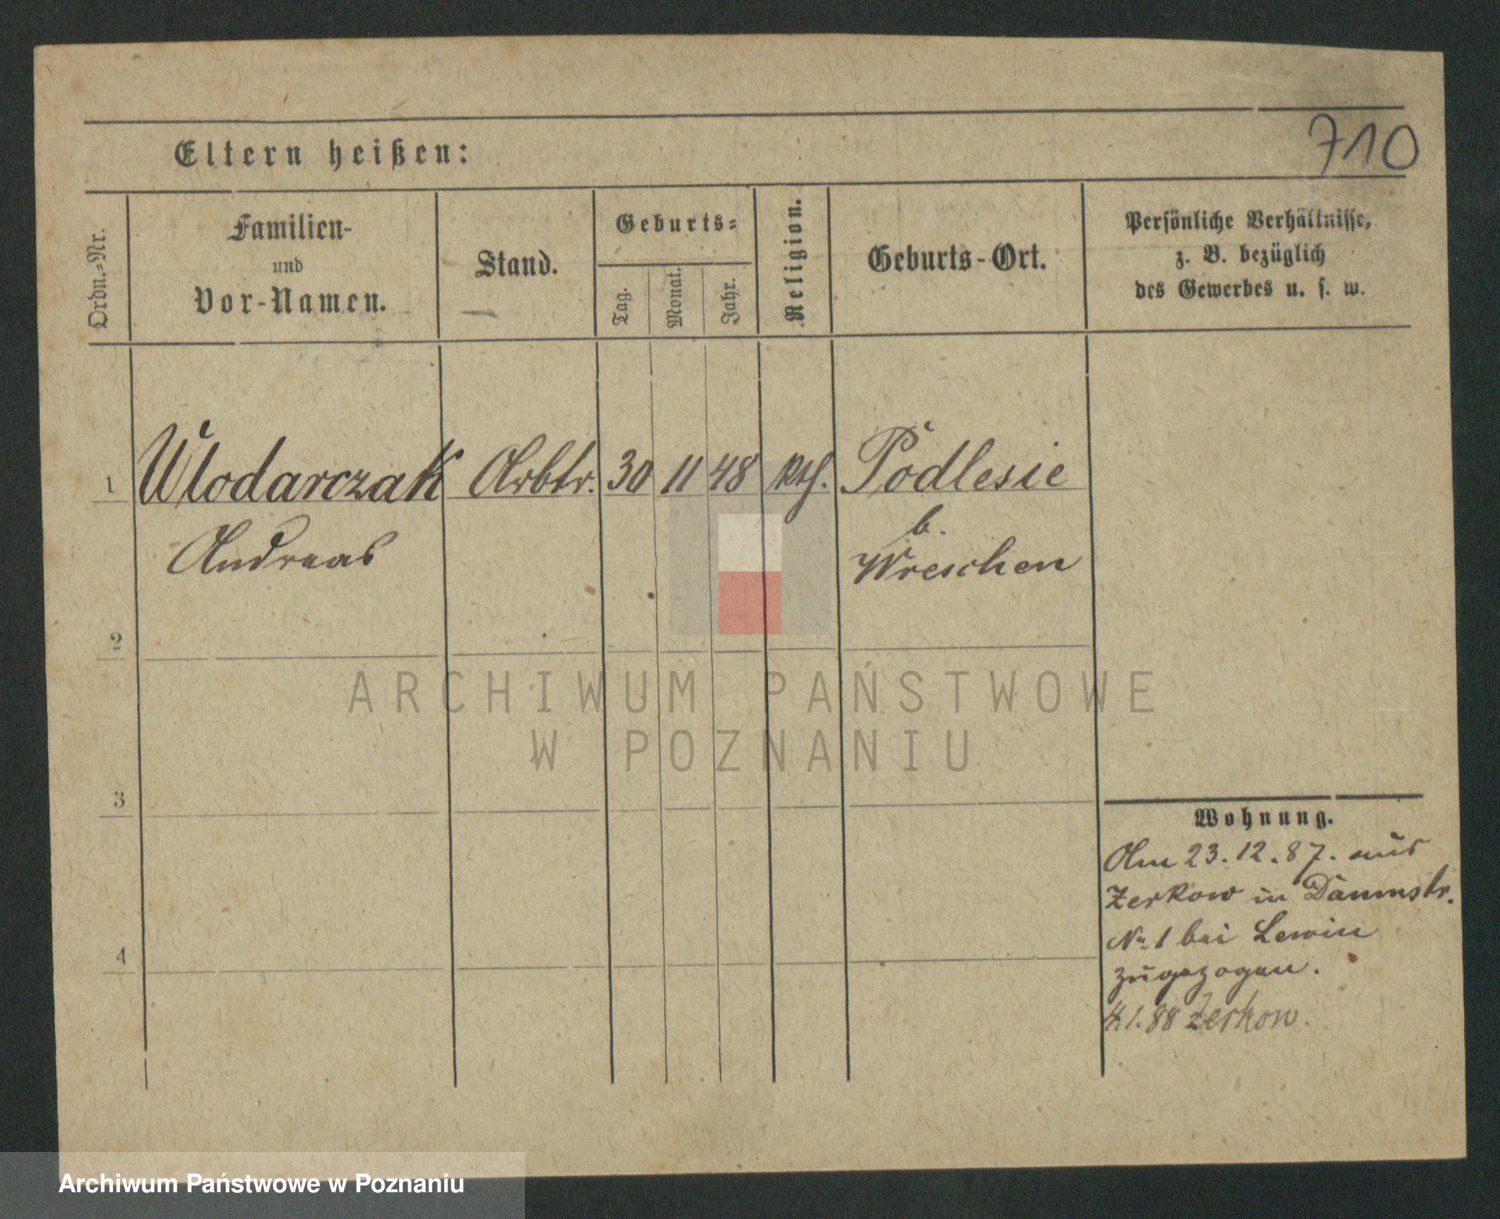 710
Eltern heißen:
Ordn.-Nr.
Familien-
und
Vor-Namen.
Stand.
Geburts-
Tag.
Monat.
Jahr.
Religion.
Geburts-Ort.
Persönliche Verhältnisse,
z. B. bezüglich
des Gewerbes u. s. w.
1 Wlodarczak Arbtr. 30 11 48 kth. Podlesie
Andreas
b.
Wreschen
2
3
4
ARCHIWUM PAŃSTWOWE
W POZNANIU
Wohnung.
Am 23.12.87. aus
Zerkow in Dammstr.
No 1 bei Lewin
zugezogen.
4.1.88 Zerkow.
Archiwum Państwowe w Poznaniu